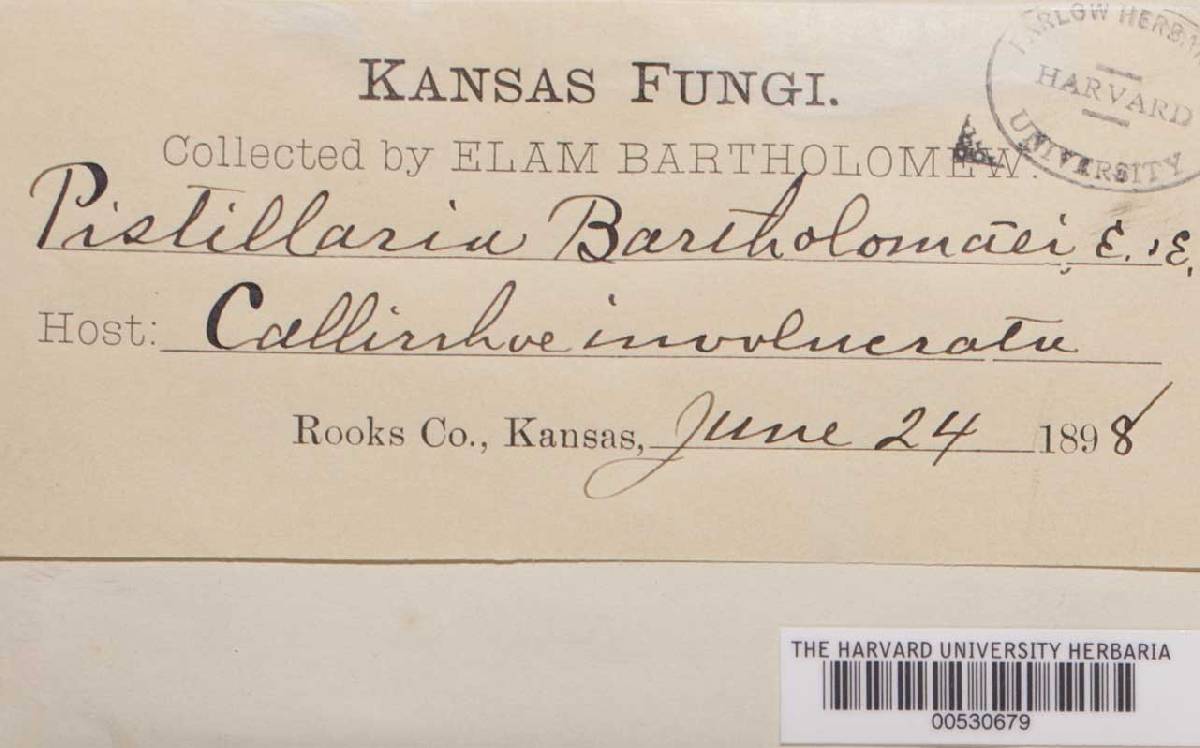 KANSAS FUNGI.
Collected by ELAM BARTHOLOMEW.
FARLOW HERB.
HARVARD
UNIVERSITY
Pistillaria Bartholomæi E. & E.
Host: Callirrhoe involucrata
Rooks Co., Kansas, June 24 1898
THE HARVARD UNIVERSITY HERBARIA
00530679